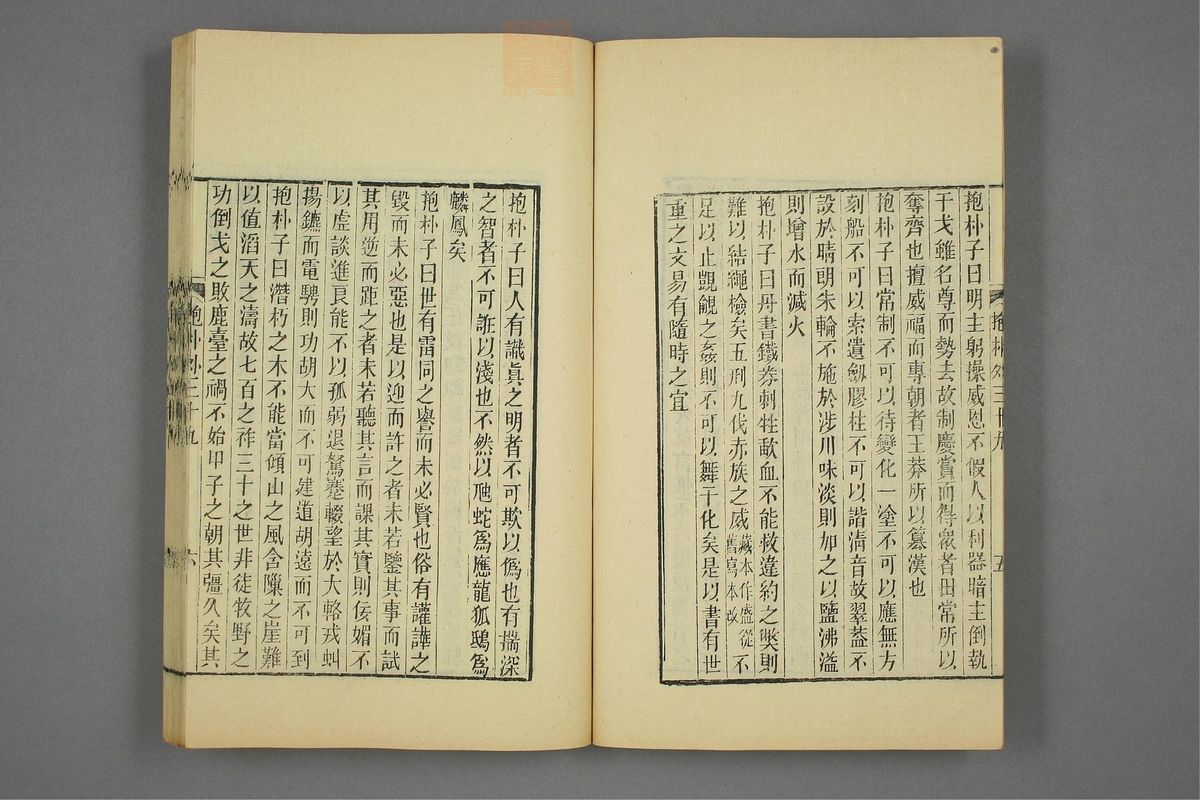 抱朴外三十九
五
抱朴子曰明主躬操威恩不假人以利器暗主倒執
干戈雖名尊而勢去故制慶賞而得衆者田常所以
奪齊也擅威福而專朝者王莽所以篡漢也
抱朴子曰常制不可以待變化一塗不可以應無方
刻船不可以索遺劔膠柱不可以諧淸音故翠葢不
設於晴朗朱輪不施於涉川味淡則加之以鹽沸溢
則增水而減火
抱朴子曰丹書鐵券刺牲歃血不能救違約之獘則
難以結繩檢矣五刑九伐赤族之威藏本作盛從舊寫本改不
足以止覬覦之姦則不可以舞干化矣是以書有世
重之文易有隨時之宜
抱朴子曰人有識眞之明者不可欺以僞也有揣深
之智者不可誑以淺也不然以虺蛇爲應龍狐鴟爲
麟鳳矣
抱朴子曰世有雷同之譽而未必賢也俗有讙譁之
毀而未必惡也是以迎而許之者未若鑒其事而試
其用逆而距之者未若聽其言而課其實則佞媚不
以虛談進良能不以孤弱退駑蹇輟望於大輅戎虯
揚鑣而電騁則功胡大而不可建道胡遠而不可到
抱朴子曰潛朽之木不能當傾山之風含隟之崖難
以値滔天之濤故七百之祚三十之世非徒牧野之
功倒戈之敗鹿臺之禍不始甲子之朝其彊久矣其
抱朴外三十九
六